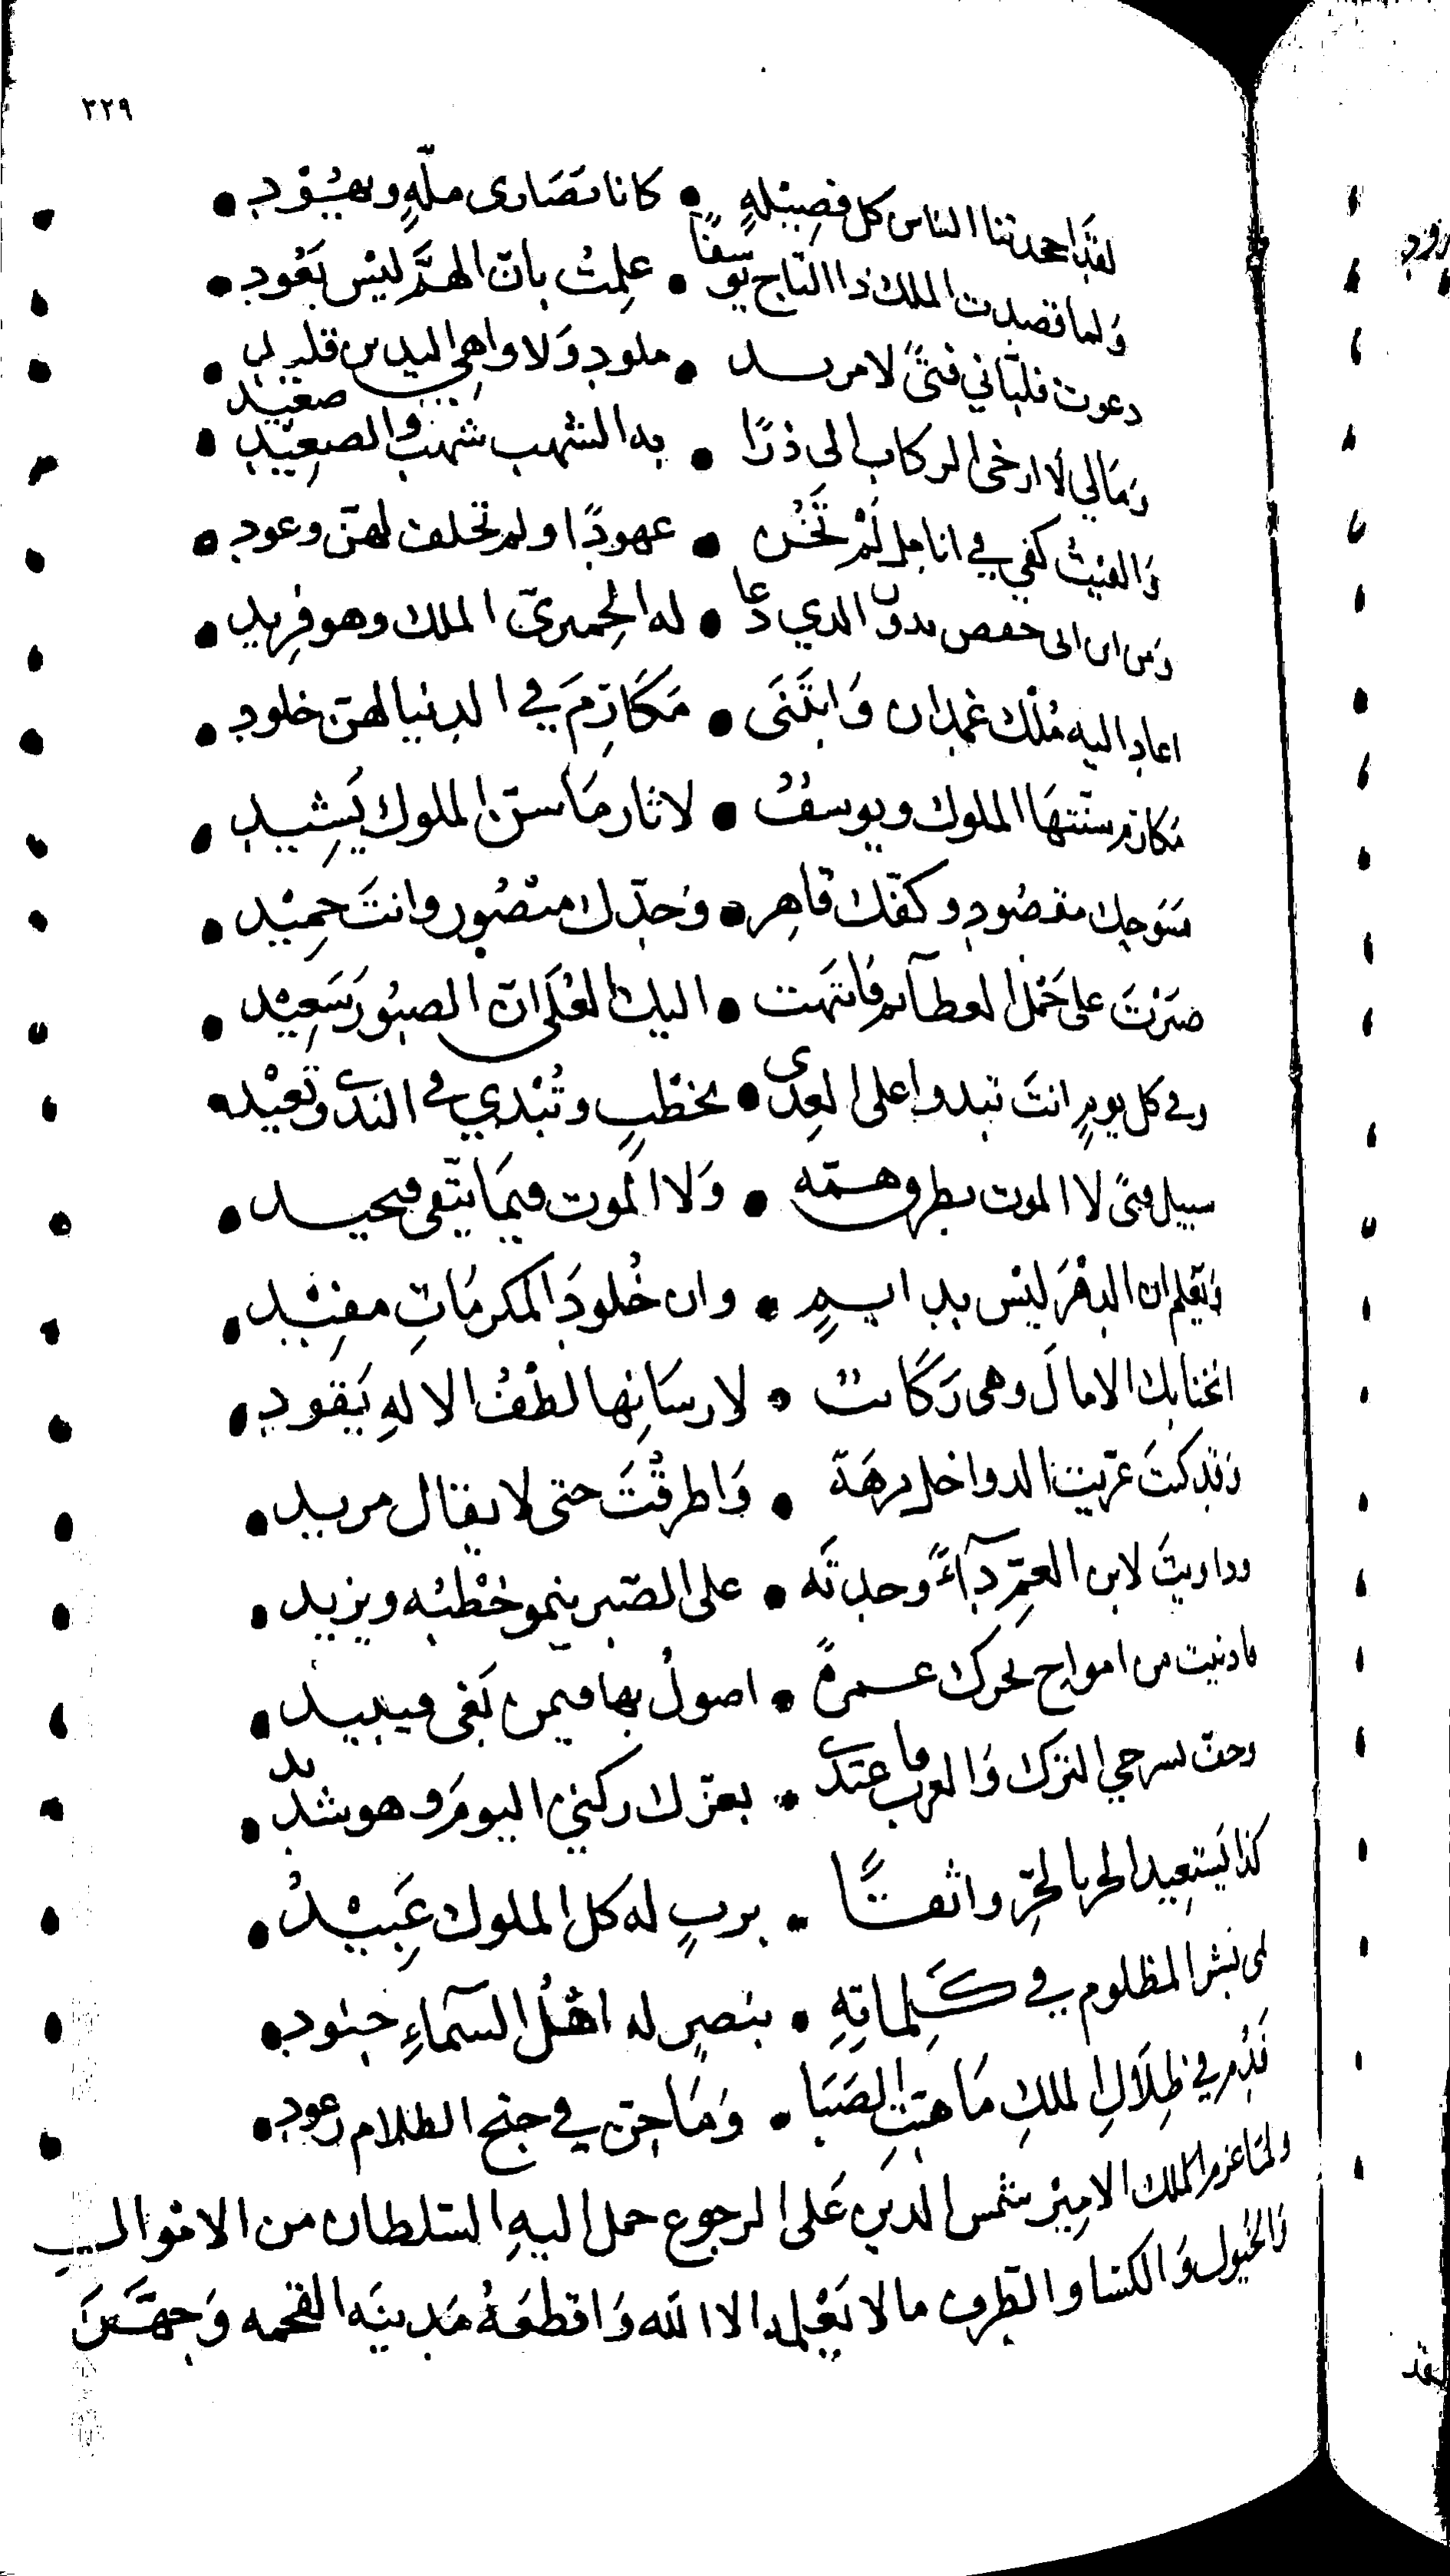 ٢٢٩
كل فصيله • كانا نصارى ملّةٍ ويهُوْد •
ولما قصدت الملك ذا التاج يوسفًا • علمتُ بانّ الهمَّ ليس يَعُود •
دعوت فلبّاني فتىً لا مرند • ملود وَلا واهي اليدين قليد
وَمَالي لا ارخى الركاب الى ذرًا • به الشهب شهب والصعِيْد صعيد •
وَالفيتُ كفي في انامل لَمْ تَخُن • عهودًا ولم تخلف لهنّ وعود •
الذي دعا • له الحِميرىّ الملك وهو فريد •
اعاد اليه مُلْك غمدان وَابتَنَى • مَكَارِمَ في الدنيا لهنّ خلود •
مَكارم سنّتهَا الملوك ويوسفُ • لاثار مَا سنّ الملوك يَشيد •
مقصُود وكفّك قاهر • وَجدّك منصُور وانتَ حمِيْد •
صبرْتَ على حَمْل العظآئم فانتهت • اليك العُلَى انّ الصبُور سَعِيْد •
وفي كل يومٍ انتَ تبدوا على العِدى • بخطْبٍ وتُبْدي في الندى وتعيْد •
سبيل فتىً لا الموت يطرق همّه • وَلا الموت فيمَا يتّقى فيحيد •
وَتعلم ان الدهْرَ ليْس بدايمٍ • وان خُلودَ المكرمَاتِ مفيْد •
انخنا بك الامالَ وهى رَكَائب • لارسَانِها لطْفُ الالهِ يَقود •
وَقد كنتَ عرّيت الدواخل برهَة • وَاطرقتَ حتى لا يقال مريد •
وداويتَ لابن العمّ دآءً وجدتَه • على الصّبر ينمو خطْبُه ويزيد •
فادنيت من امواج بحرك غمرةً • اصولُ بها فيمن بَغى فيبيد •
وحفّ لسرجي الترك وَالعرب فاغتدى • بعزّك ركني اليومَ وهو شديد •
كذا يَستعِيد الحر بالحرّ واثقًا • بربٍ له كل الملوك عَبِيْدُ •
المظلوم في كَلِماتِهِ • بنصرٍ له اهْلُ السمآءِ جنود •
فَدُم في ظِلَالِ الملكِ مَا هبّتِ الصَبَا • وَمَا حنّ في جنح الظلام رعود •
ولمّا عزم الملك الامِيْر شمس الدين عَلى الرجوع حمل اليهِ السلطان من الاموال
وَالخيُول وَالكسَا والطرف ما لا يَعْلمه الا الله وَاقطعَهُ مَدينَه القحمه وَجهَّزَ